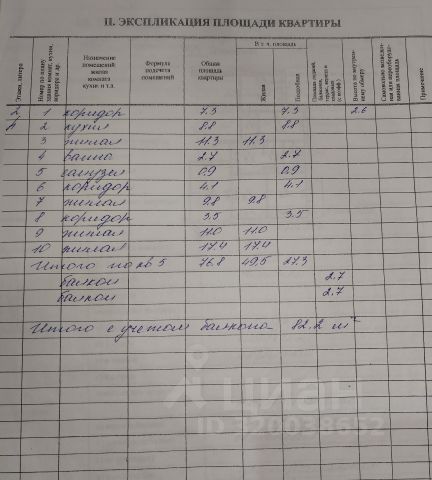 II. ЭКСПЛИКАЦИЯ ПЛОЩАДИ КВАРТИРЫ
Этажи, литера
Номер по плану
Назначение помещений жилая комната кухня и т.п.
Формула подсчета помещений
Общая площадь квартиры
В т. ч. площадь
Жилая
Подсобная
Высота по внутреннему обмеру
Примечание
2 1 коридор 7.3 7.3 2.6
А 2 кухня 8.8 8.8
3 жилая 11.3 11.3
4 ванна 2.7 2.7
5 санузел 0.9 0.9
6 коридор 4.1 4.1
7 жилая 9.8 9.8
8 коридор 3.5 3.5
9 жилая 11.0 11.0
10 жилая 17.4 17.4
Итого по кв 5 76.8 49.5 27.3
балкон 2.7
балкон 2.7
Итого с учетом балкона 82.2 м²
циан
ID 320038662